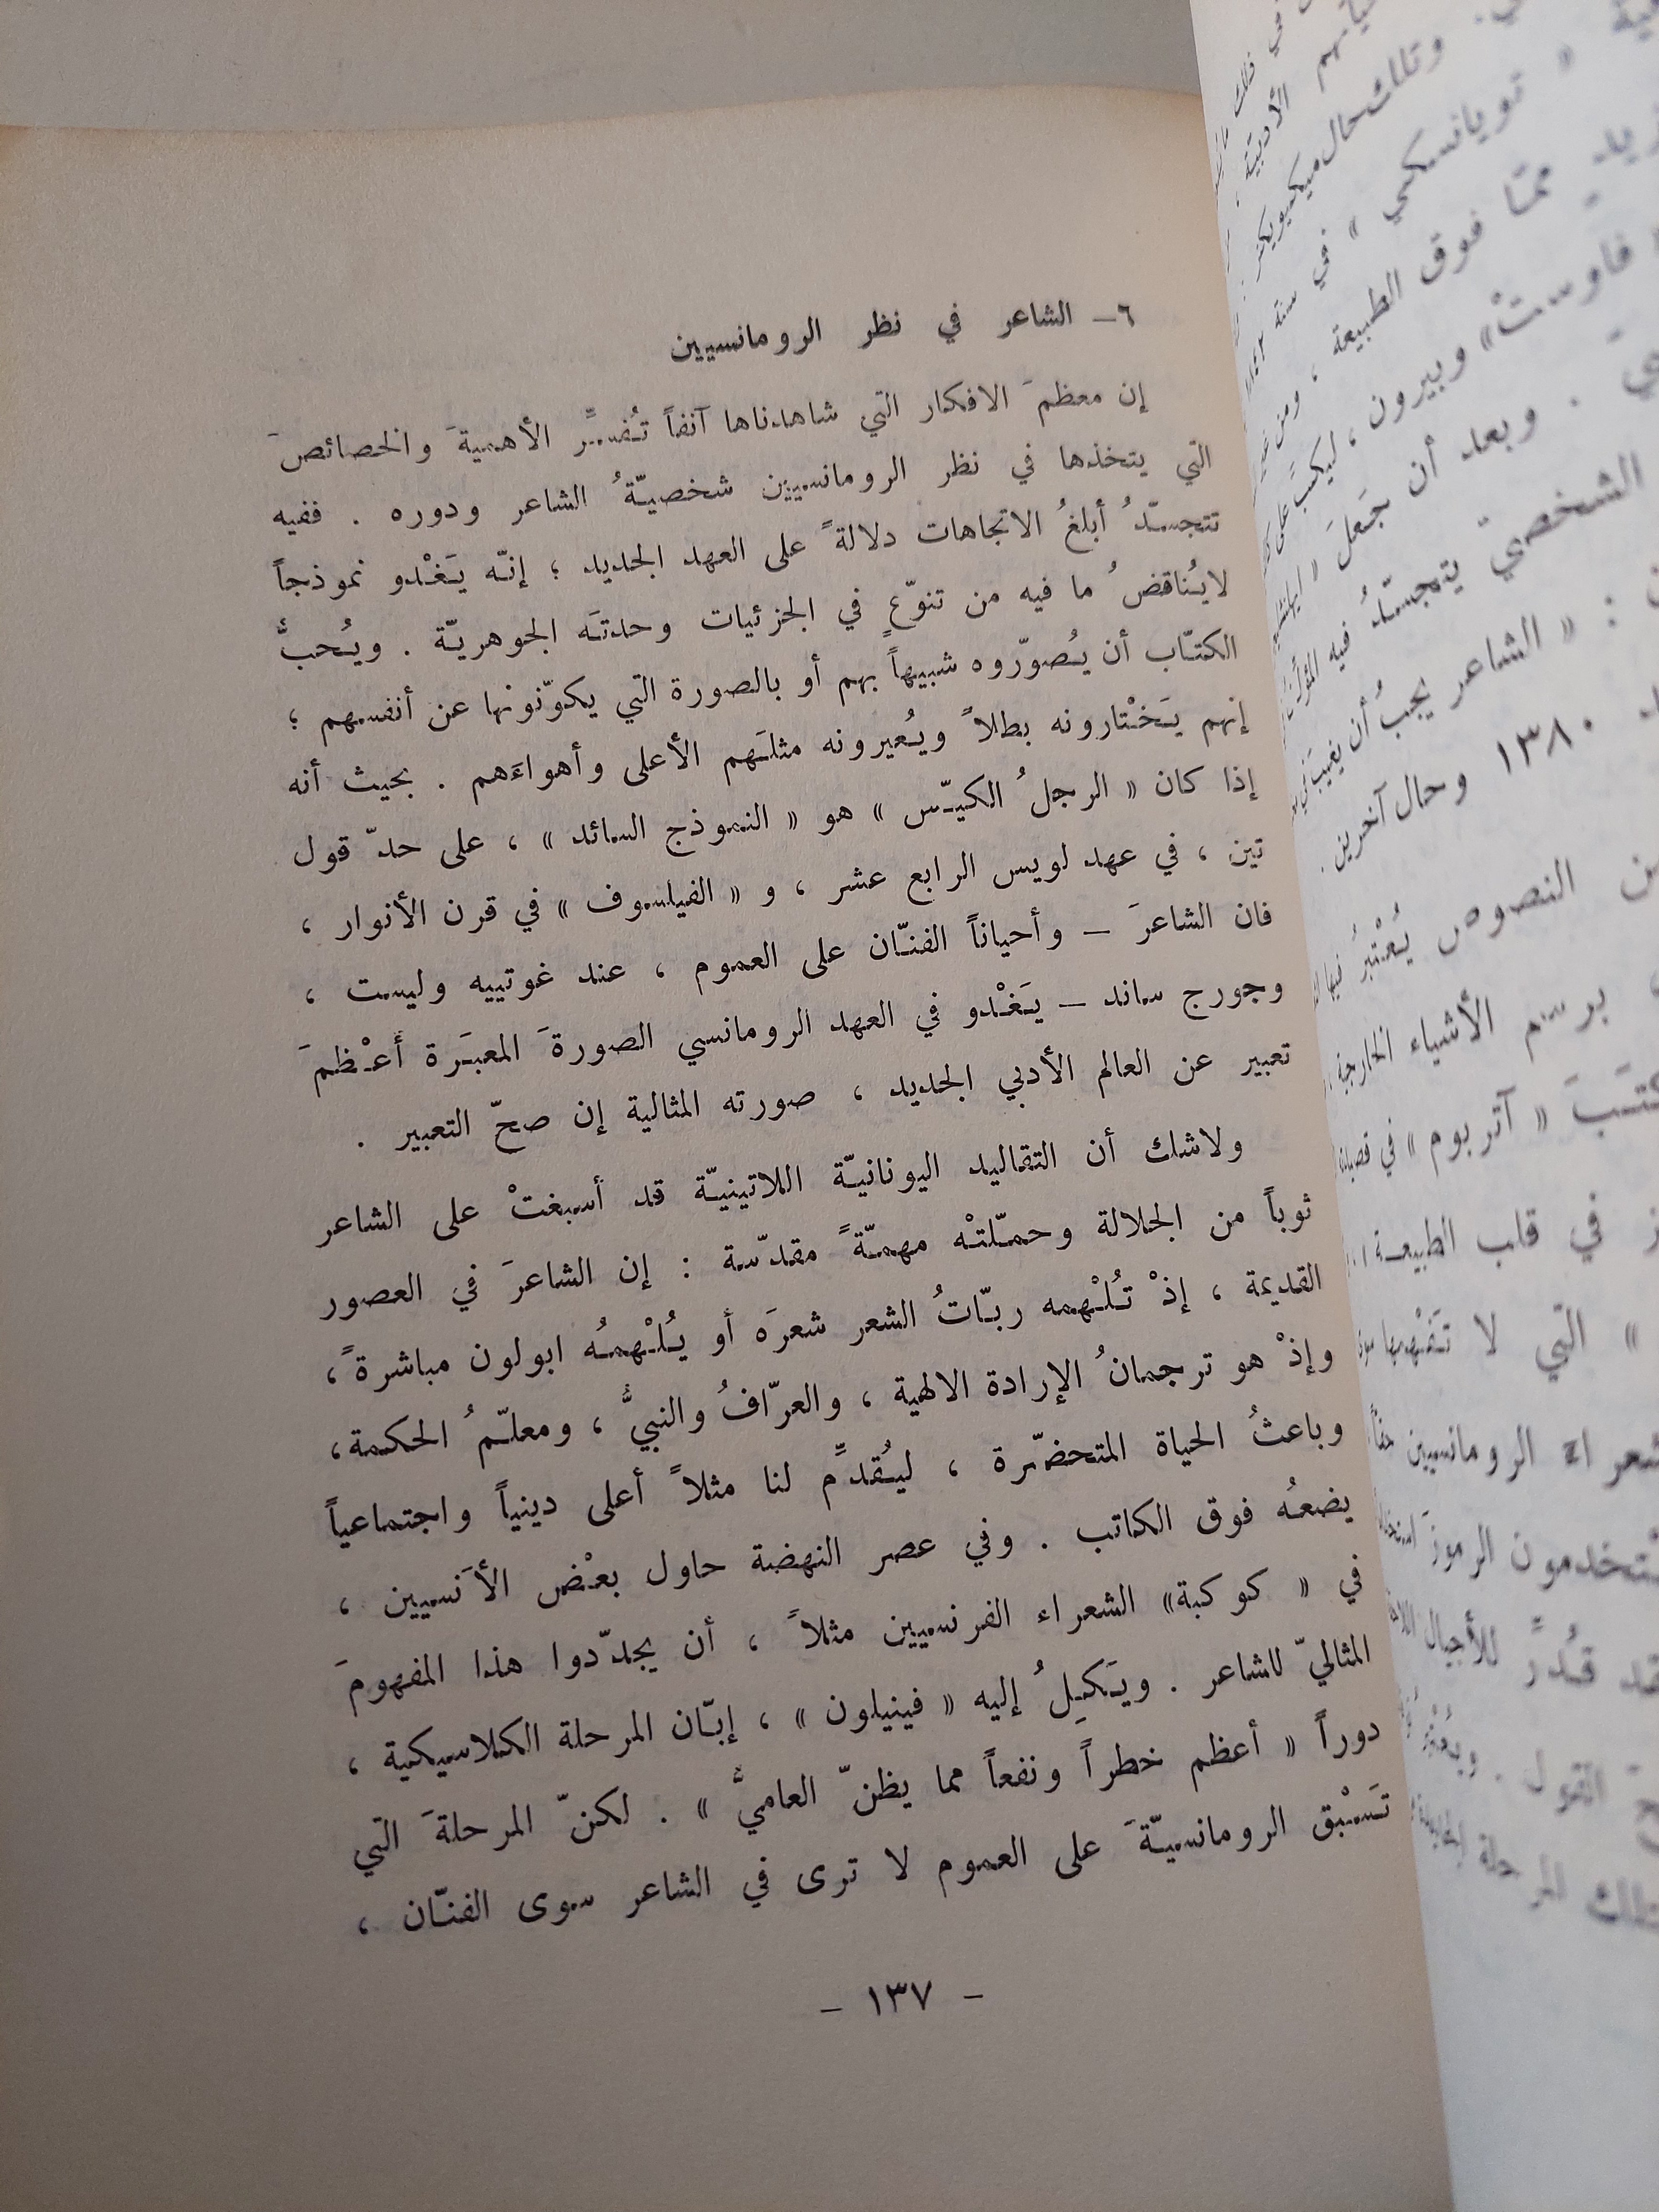 ٦ – الشاعر في نظر الرومانسيين
إن معظمَ الافكار التي شاهدناها آنفاً تُفسِّر الأهميةَ والخصائصَ
التي يتخذها في نظر الرومانسيين شخصيّةُ الشاعر ودوره . ففيه
تتجسّدُ أبلغُ الاتجاهات دلالةً على العهد الجديد ؛ إنّه يَغْدو نموذجاً
لايُناقضُ ما فيه من تنوّعٍ في الجزئيات وحدتَه الجوهريّة . ويُحبُّ
الكتّاب أن يُصوّروه شبيهاً بهم أو بالصورة التي يكوّنونها عن أنفسهم ؛
إنهم يَخْتارونه بطلاً ويُعيرونه مثلَهم الأعلى وأهواءَهم . بحيث أنه
إذا كان « الرجلُ الكيّس » هو « النموذج السائد » ، على حدّ قول
تين ، في عهد لويس الرابع عشر ، و « الفيلسوف » في قرن الأنوار ،
فان الشاعرَ – وأحياناً الفنّان على العموم ، عند غوتييه وليست ،
وجورج ساند – يَغْدو في العهد الرومانسي الصورةَ المعبَرة أَعْظمَ
تعبير عن العالم الأدبي الجديد ، صورته المثالية إن صحّ التعبير .
ولاشك أن التقاليد اليونانيّة اللاتينيّة قد أسبغتْ على الشاعر
ثوباً من الجلالة وحمّلتْه مهمّةً مقدّسة : إن الشاعرَ في العصور
القديمة ، إذْ تُلْهمه ربّاتُ الشعر شعرَه أو يُلْهمُه ابولون مباشرةً ،
وإذْ هو ترجمانُ الإرادة الالهية ، والعرّافُ والنبيُّ ، ومعلّمُ الحكمة ،
وباعثُ الحياة المتحضّرة ، ليُقدِّم لنا مثلاً أعلى دينياً واجتماعياً
يضعُه فوق الكاتب . وفي عصر النهضة حاول بعْض الأَنسيين ،
في « كوكبة » الشعراء الفرنسيين مثلاً ، أن يجدّدوا هذا المفهومَ
المثاليّ للشاعر . ويَكِلُ إليه « فينيلون » ، إبّان المرحلة الكلاسيكية ،
دوراً « أعظم خطراً ونفعاً مما يظنّ العاميُّ » . لكنّ المرحلةَ التي
تَسْبق الرومانسيّةَ على العموم لا ترى في الشاعر سوى الفنّان ،
– ١٣٧ –
وتلك حال ميكيويكز
« تويانسكي » في سنة
ممّا فوق الطبيعة ، ومن
فاوستْ » وبيرون ، ليكبَ على
. وبعد أن جَعلَ «
الشخصيّ يتجسّدُ فيه
: « الشاعر يجبُ أن يغيبَ في
١٣٨٠ وحال آخرين .
النصوص يُعْتبرُ فيها
برسم الأشياء الخارجة
« آتربوم » في
في قلب الطبيعة
» التي لا تَفْهمها
الرومانسيين حقاً
الرموزَ
قُدِّرَ للأجيال
القول .
المرحلة